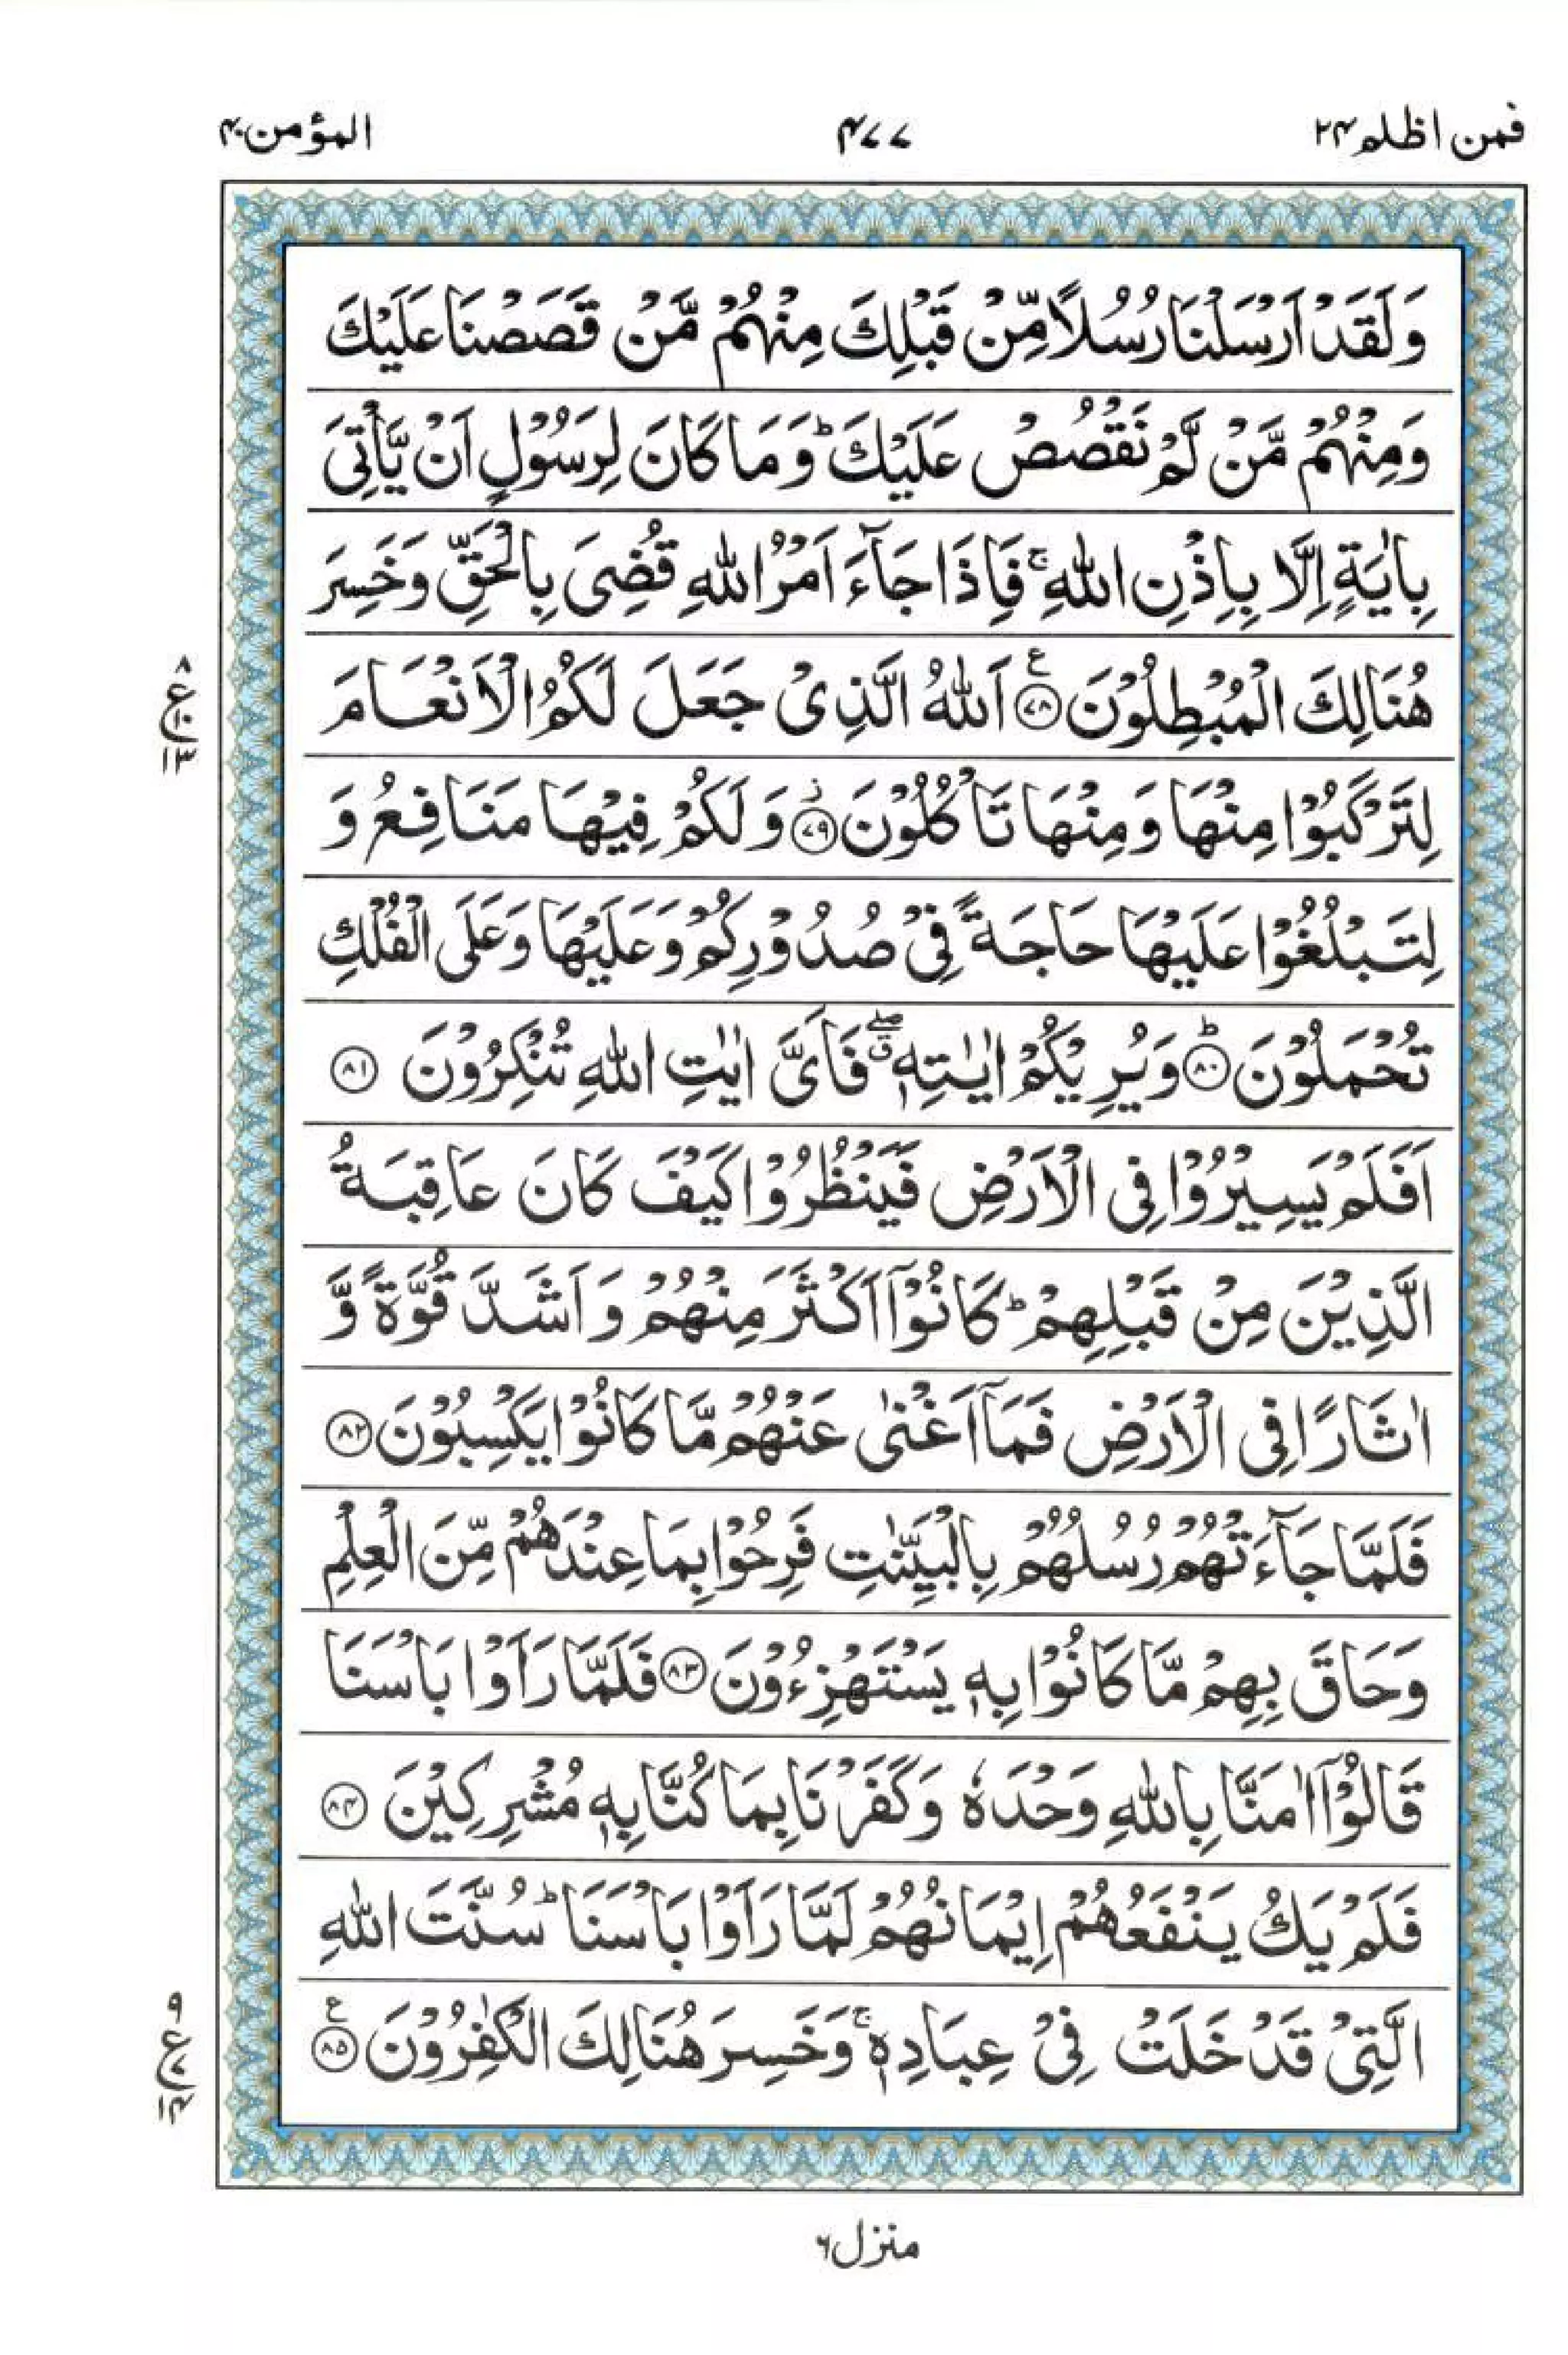 فمن اظلم ۲۴
۴۷۷
المؤمن ۴۰
وَلَقَدْ اَرْسَلْنَا رُسُلًا مِّنْ قَبْلِكَ مِنْهُمْ مَّنْ قَصَصْنَا عَلَيْكَ
وَمِنْهُمْ مَّنْ لَّمْ نَقْصُصْ عَلَيْكَ ؕ وَمَا كَانَ لِرَسُوْلٍ اَنْ يَّاْتِيَ
بِاٰيَةٍ اِلَّا بِاِذْنِ اللّٰهِ ۚ فَاِذَا جَآءَ اَمْرُ اللّٰهِ قُضِيَ بِالْحَقِّ وَخَسِرَ
هُنَالِكَ الْمُبْطِلُوْنَ ﴿۷۸﴾ ع اَللّٰهُ الَّذِيْ جَعَلَ لَكُمُ الْاَنْعَامَ
لِتَرْكَبُوْا مِنْهَا وَمِنْهَا تَاْكُلُوْنَ ﴿۷۹﴾ ز وَلَكُمْ فِيْهَا مَنَافِعُ وَ
لِتَبْلُغُوْا عَلَيْهَا حَاجَةً فِيْ صُدُوْرِكُمْ وَعَلَيْهَا وَعَلَى الْفُلْكِ
تُحْمَلُوْنَ ﴿۸۰﴾ ؕ وَيُرِيْكُمْ اٰيٰتِهٖ ۖ ق فَاَيَّ اٰيٰتِ اللّٰهِ تُنْكِرُوْنَ ﴿۸۱﴾
اَفَلَمْ يَسِيْرُوْا فِي الْاَرْضِ فَيَنْظُرُوْا كَيْفَ كَانَ عَاقِبَةُ
الَّذِيْنَ مِنْ قَبْلِهِمْ ؕ كَانُوْۤا اَكْثَرَ مِنْهُمْ وَاَشَدَّ قُوَّةً وَّ
اٰثَارًا فِي الْاَرْضِ فَمَاۤ اَغْنٰى عَنْهُمْ مَّا كَانُوْا يَكْسِبُوْنَ ﴿۸۲﴾
فَلَمَّا جَآءَتْهُمْ رُسُلُهُمْ بِالْبَيِّنٰتِ فَرِحُوْا بِمَا عِنْدَهُمْ مِّنَ الْعِلْمِ
وَحَاقَ بِهِمْ مَّا كَانُوْا بِهٖ يَسْتَهْزِءُوْنَ ﴿۸۳﴾ فَلَمَّا رَاَوْا بَاْسَنَا
قَالُوْۤا اٰمَنَّا بِاللّٰهِ وَحْدَهٗ وَكَفَرْنَا بِمَا كُنَّا بِهٖ مُشْرِكِيْنَ ﴿۸۴﴾
فَلَمْ يَكُ يَنْفَعُهُمْ اِيْمَانُهُمْ لَمَّا رَاَوْا بَاْسَنَا ؕ سُنَّتَ اللّٰهِ
الَّتِيْ قَدْ خَلَتْ فِيْ عِبَادِهٖ ۚ وَخَسِرَ هُنَالِكَ الْكٰفِرُوْنَ ﴿۸۵﴾ ع
۸
ع ۱۰
۱۳
۹
ع ۷
۱۴
منزل ۶